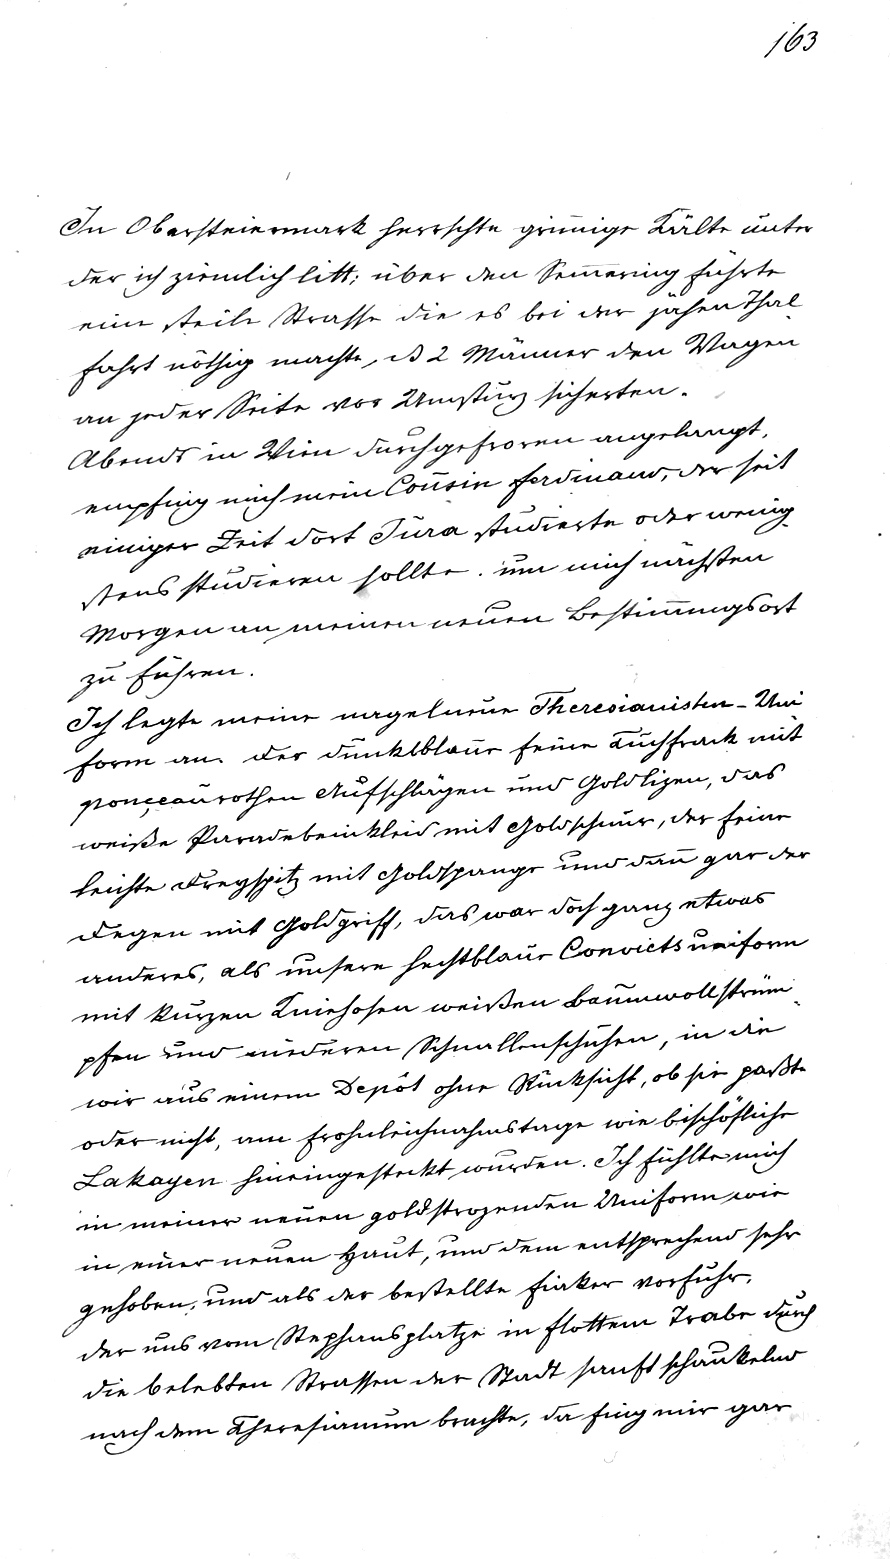 163
In Obersteiermark herrschte grim̅ige Kälte unter
der ich ziemlich litt; über den Sem̅ering führte
eine steile Strasse die es bei der jähen Thal
fahrt nöthig machte, 2 Männer den Wagen
an jeder Seite vor Umsturz sicherten.
Abends in Wien durchgefroren angelangt,
empfing mich mein Cousin Ferdinand, der seit
einiger Zeit dort Jura studierte oder wenig-
stens studieren sollte. um mich nächsten
Morgen an meinen neuen Bestim̅ungsort
zu führen.
Ich legte meine nagelneue Theresianisten-Uni
form an. Der dunkelblaue feine Tuchfrack mit
ponçeaurothen Aufschlägen und Goldlizen, das
weiße Paradebeinkleid mit Goldschnur, der feine
leichte Dreyspitz mit Goldspange und dan̅ gar der
Degen mit Goldgriff, das war doch ganz etwas
anderes, als unsere hechtblaue Convictsuniform
mit kurzen Kniehosen weißen Baumwollstrüm-
pfen und niederen Schnallenschuhen, in die
wir aus einem Depôt ohne Rücksicht, ob sie paßte
oder nicht, am Frohnleichnahmstage wie bischöfliche
Lakayen hineingesteckt wurden. Ich fühlte mich
in meiner neuen goldstrozenden Uniform wie
in einer neuen Haut, und dem entsprechend sehr
gehoben, und als der bestellte Fiaker vorfuhr,
der uns vom Stephansplatze in flottem Trabe durch
die belebten Strassen der Stadt sanft schaukelnd
nach dem Theresianum brachte, da fing mir gar